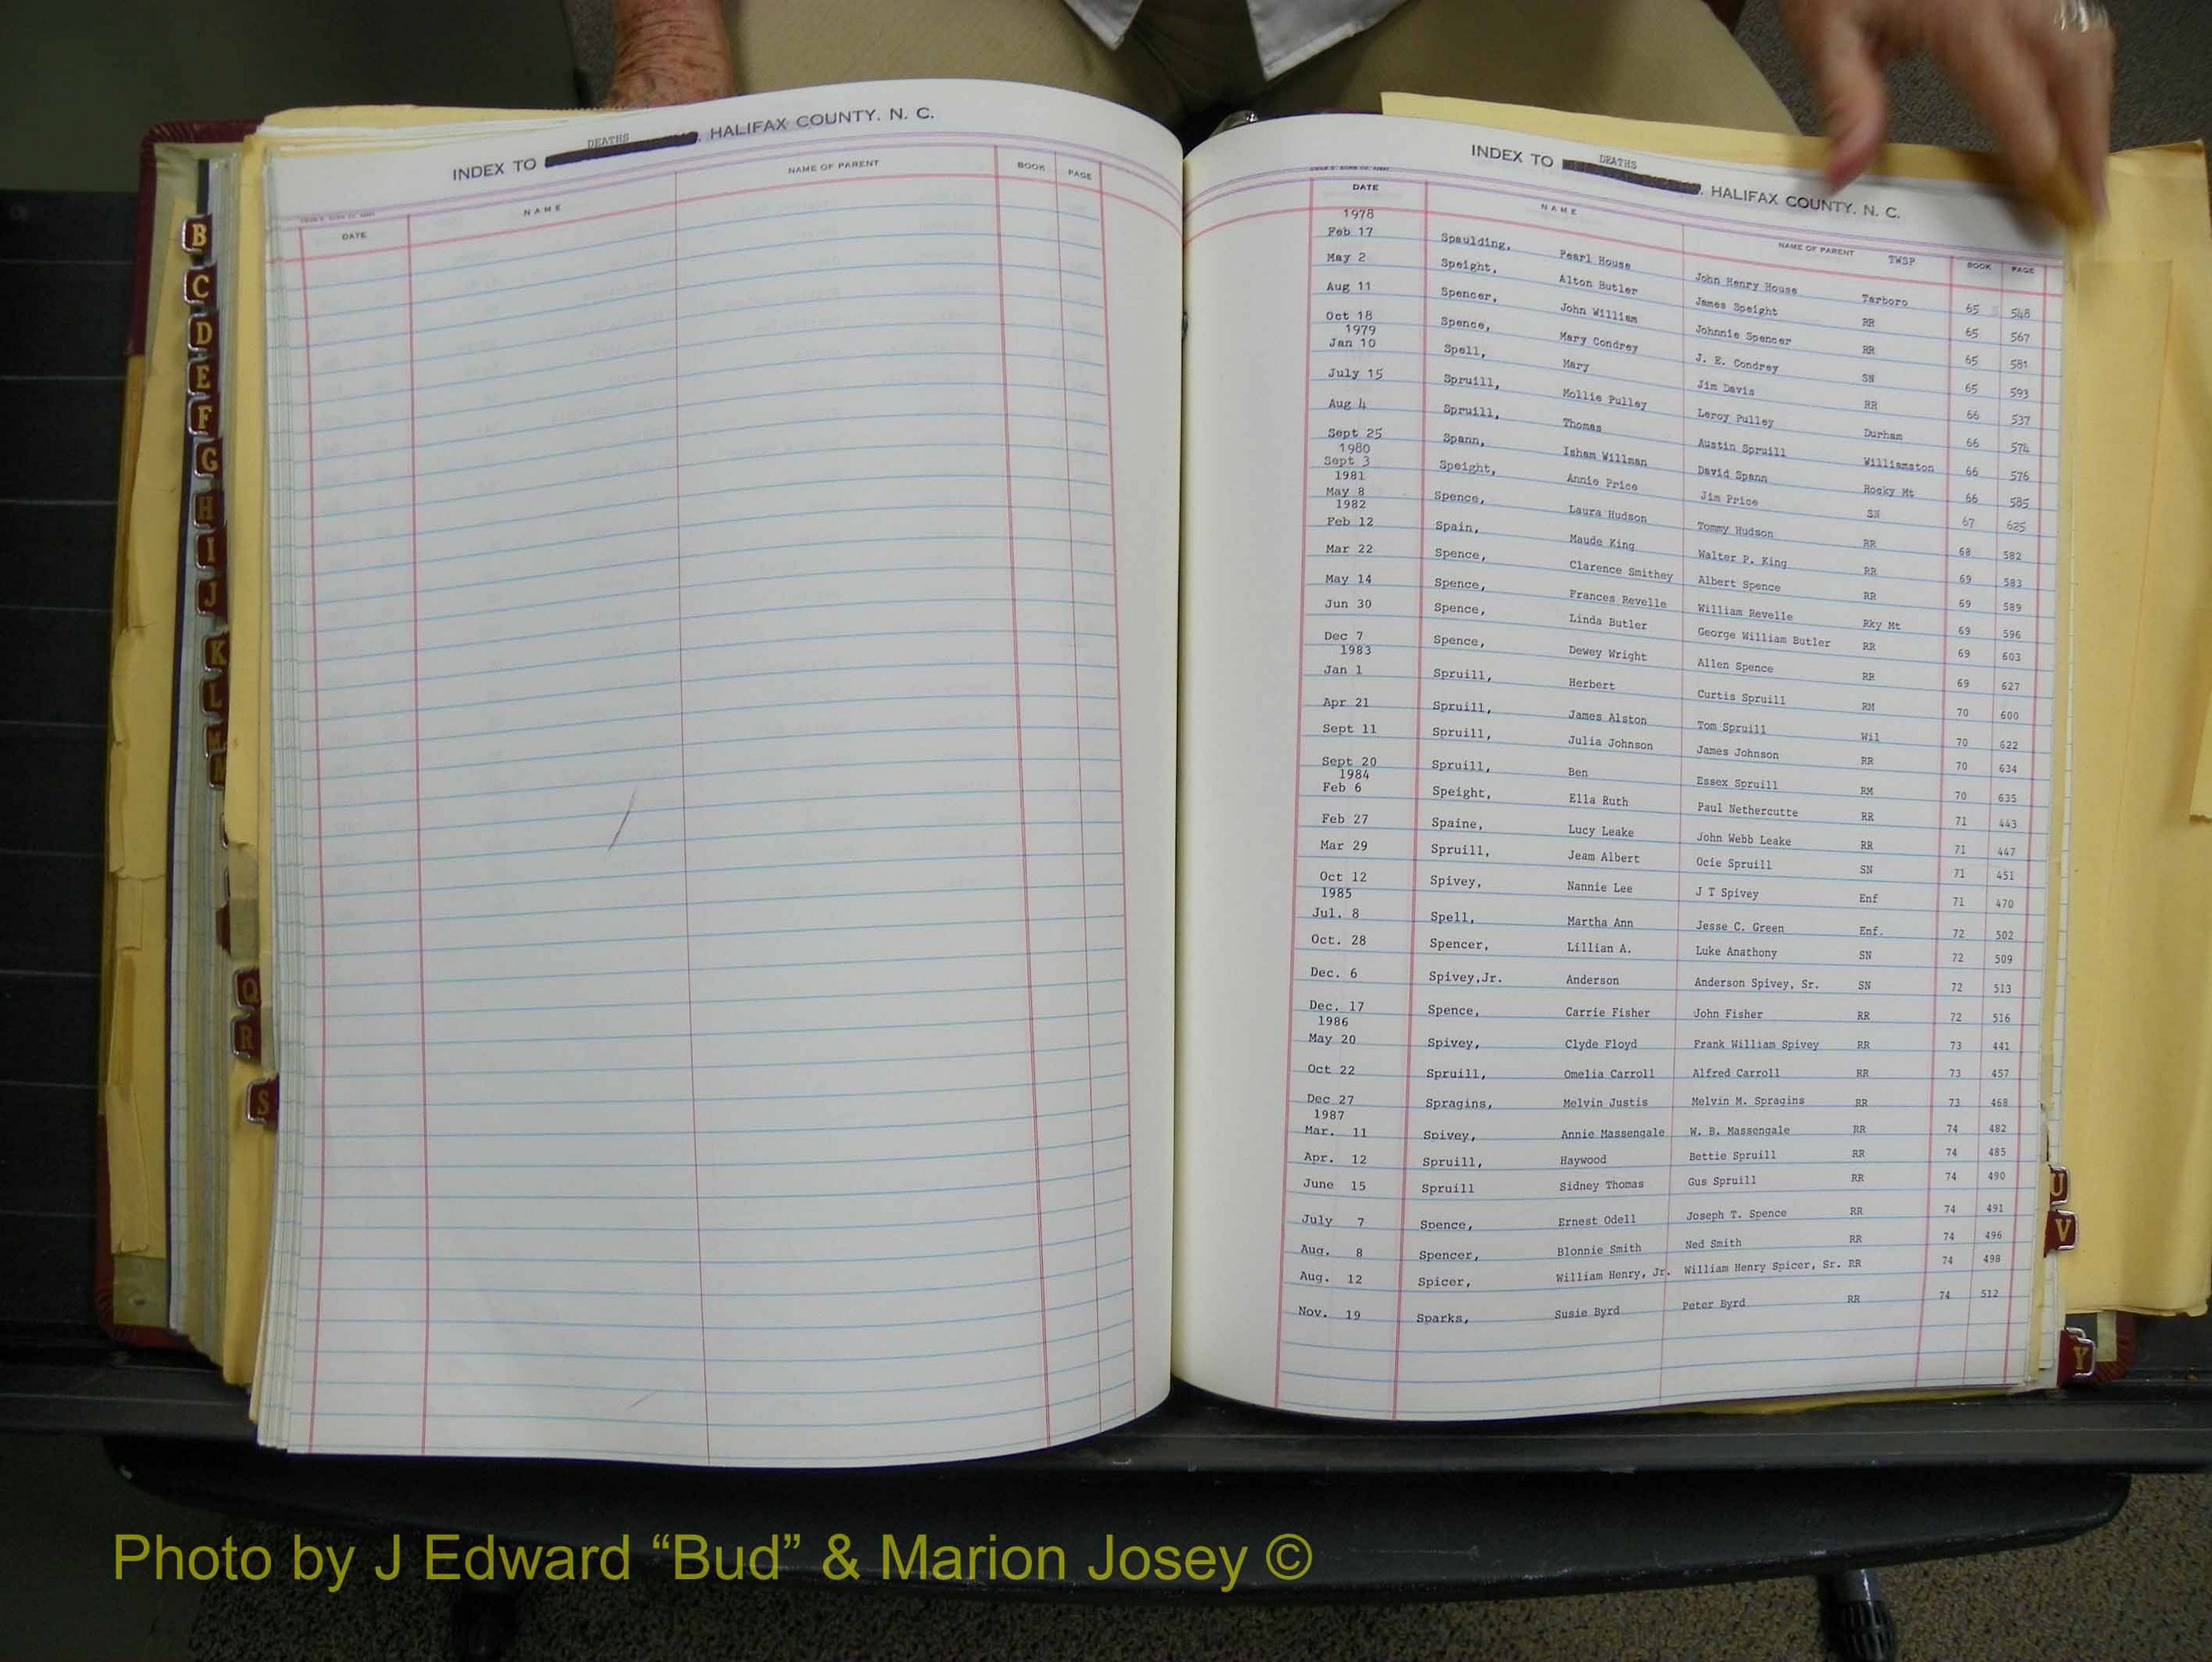 INDEX TO DEATHS, HALIFAX COUNTY, N. C.
DATE NAME NAME OF PARENT BOOK PAGE
B
C
D
E
F
G
H
I
J
K
L
M
N
Q
R
S
INDEX TO DEATHS, HALIFAX COUNTY. N. C.
DATE NAME NAME OF PARENT TWSP BOOK PAGE
1978
Feb 17 Spaulding, Pearl House John Henry House Tarboro 65 548
May 2 Speight, Alton Butler James Speight RR 65 567
Aug 11 Spencer, John William Johnnie Spencer RR 65 581
Oct 18 Spence, Mary Condrey J. E. Condrey SN 65 593
1979
Jan 10 Spell, Mary Jim Davis RR 66 537
July 15 Spruill, Mollie Pulley Leroy Pulley Durham 66 574
Aug 4 Spruill, Thomas Austin Spruill Williamston 66 576
Sept 25 Spann, Isham Willman David Spann Rocky Mt 66 585
1980
Sept 3 Speight, Annie Price Jim Price SN 67 625
1981
May 8 Spence, Laura Hudson Tommy Hudson RR 68 582
1982
Feb 12 Spain, Maude King Walter P. King RR 69 583
Mar 22 Spence, Clarence Smithey Albert Spence RR 69 589
May 14 Spence, Frances Revelle William Revelle Rky Mt 69 596
Jun 30 Spence, Linda Butler George William Butler RR 69 603
Dec 7 Spence, Dewey Wright Allen Spence RR 69 627
1983
Jan 1 Spruill, Herbert Curtis Spruill RM 70 600
Apr 21 Spruill, James Alston Tom Spruill Wil 70 622
Sept 11 Spruill, Julia Johnson James Johnson RR 70 634
Sept 20 Spruill, Ben Essex Spruill RM 70 635
1984
Feb 6 Speight, Ella Ruth Paul Nethercutte RR 71 443
Feb 27 Spaine, Lucy Leake John Webb Leake RR 71 447
Mar 29 Spruill, Jeam Albert Ocie Spruill SN 71 451
Oct 12 Spivey, Nannie Lee J T Spivey Enf 71 470
1985
Jul. 8 Spell, Martha Ann Jesse C. Green Enf. 72 502
Oct. 28 Spencer, Lillian A. Luke Anathony SN 72 509
Dec. 6 Spivey,Jr. Anderson Anderson Spivey, Sr. SN 72 513
Dec. 17 Spence, Carrie Fisher John Fisher RR 72 516
1986
May 20 Spivey, Clyde Floyd Frank William Spivey RR 73 441
Oct 22 Spruill, Omelia Carroll Alfred Carroll RR 73 457
Dec 27 Spragins, Melvin Justis Melvin M. Spragins RR 73 468
1987
Mar. 11 Spivey, Annie Massengale W. B. Massengale RR 74 482
Apr. 12 Spruill, Haywood Bettie Spruill RR 74 485
June 15 Spruill Sidney Thomas Gus Spruill RR 74 490
July 7 Spence, Ernest Odell Joseph T. Spence RR 74 491
Aug. 8 Spencer, Blonnie Smith Ned Smith RR 74 496
Aug. 12 Spicer, William Henry, Jr. William Henry Spicer, Sr. RR 74 498
Nov. 19 Sparks, Susie Byrd Peter Byrd RR 74 512
U
V
Y
Photo by J Edward “Bud” & Marion Josey ©